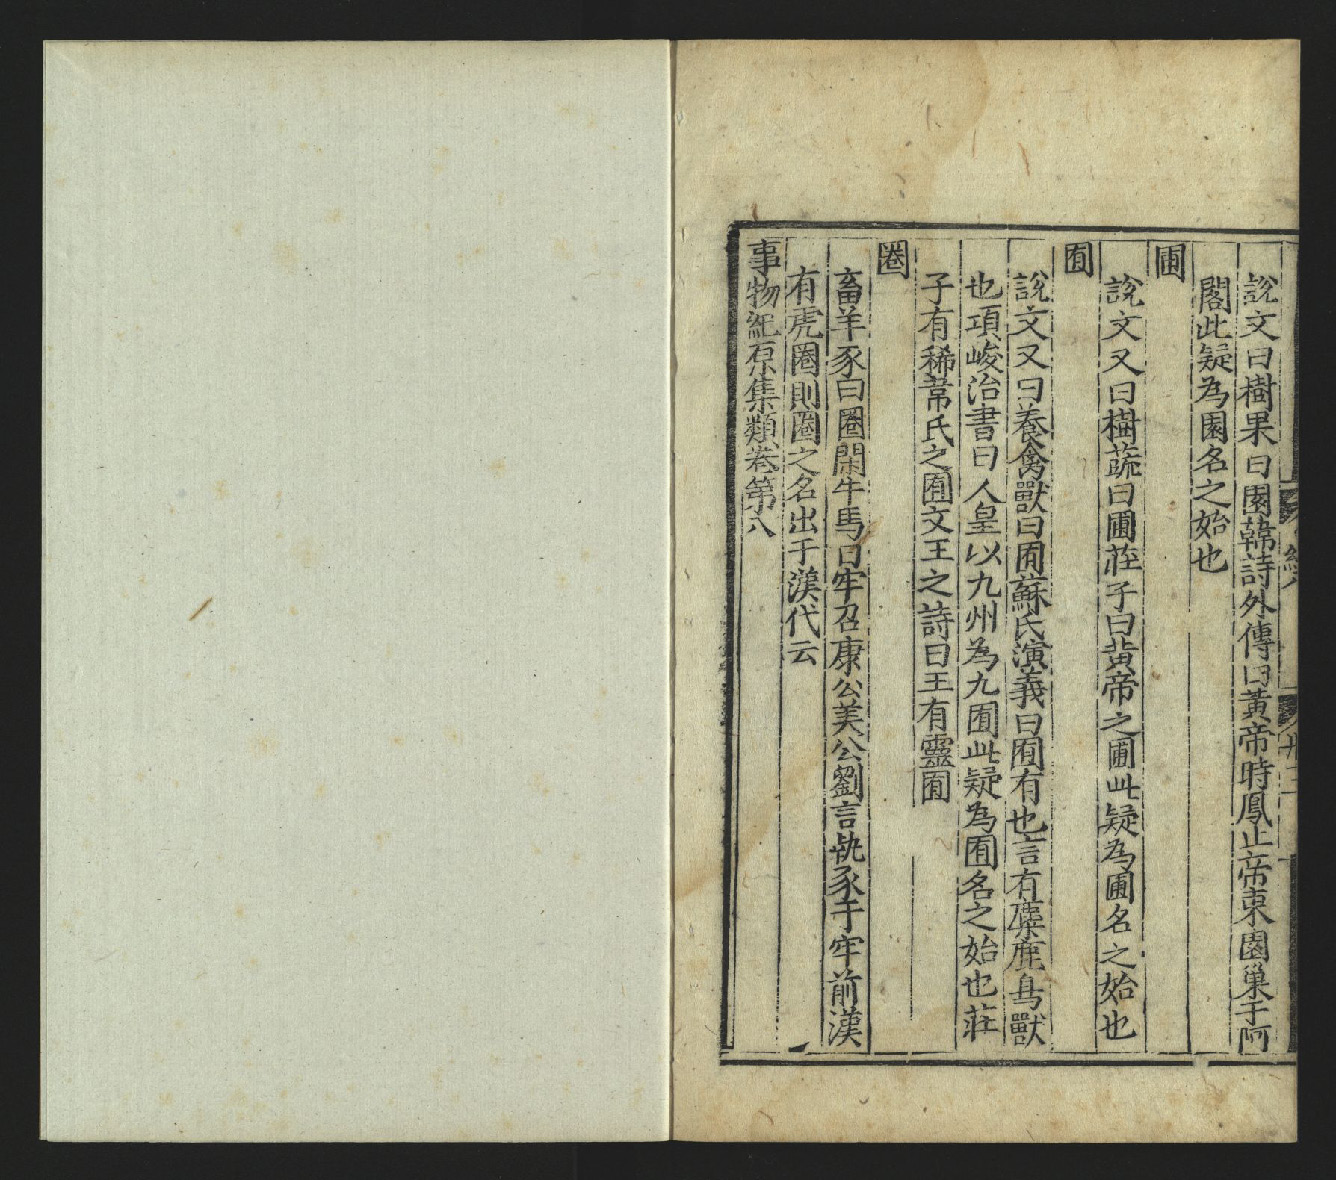 說文曰樹果曰園韓詩外傳曰黃帝時鳳止帝東園巢于阿
閣此疑為園名之始也
圃
說文又曰樹蔬曰圃莊子曰黃帝之圃此疑為圃名之始也
囿
說文又曰養禽獸曰囿蘇氏演義曰囿有也言有麋鹿鳥獸
也項峻治書曰人皇以九州為九囿此疑為囿名之始也莊
子有稀韋氏之囿文王之詩曰王有靈囿
圈
畜羊豕曰圈閑牛馬曰牢召康公美公劉言執豕于牢前漢
有虎圈則圈之名出于漢代云
事物紀原集類卷第八